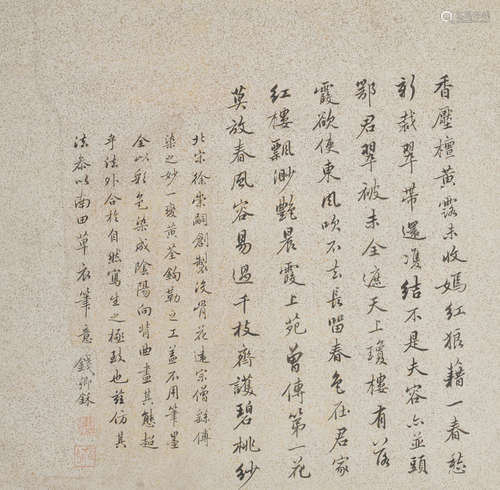 香壓檀黃露未收嫣紅狼藉一春愁
新裁翠帶還渡結不是夫容亦並頭
鄂君翠被未全遮天上瓊樓有落
霞欲使東風吹不去長留春色任君家
紅樓飄渺艷晨霞上苑曾傳第一花
莫放春風容易過千枝齊護碧桃紗
北宋徐崇嗣創製沒骨花遠宗僧繇傅
染之妙一變黃荃鉤勒之工蓋不用筆墨
全以彩色染成陰陽向背曲盡其態超
乎法外合於自然寫生之極致也茲仿其
法參以南田草衣筆意 錢